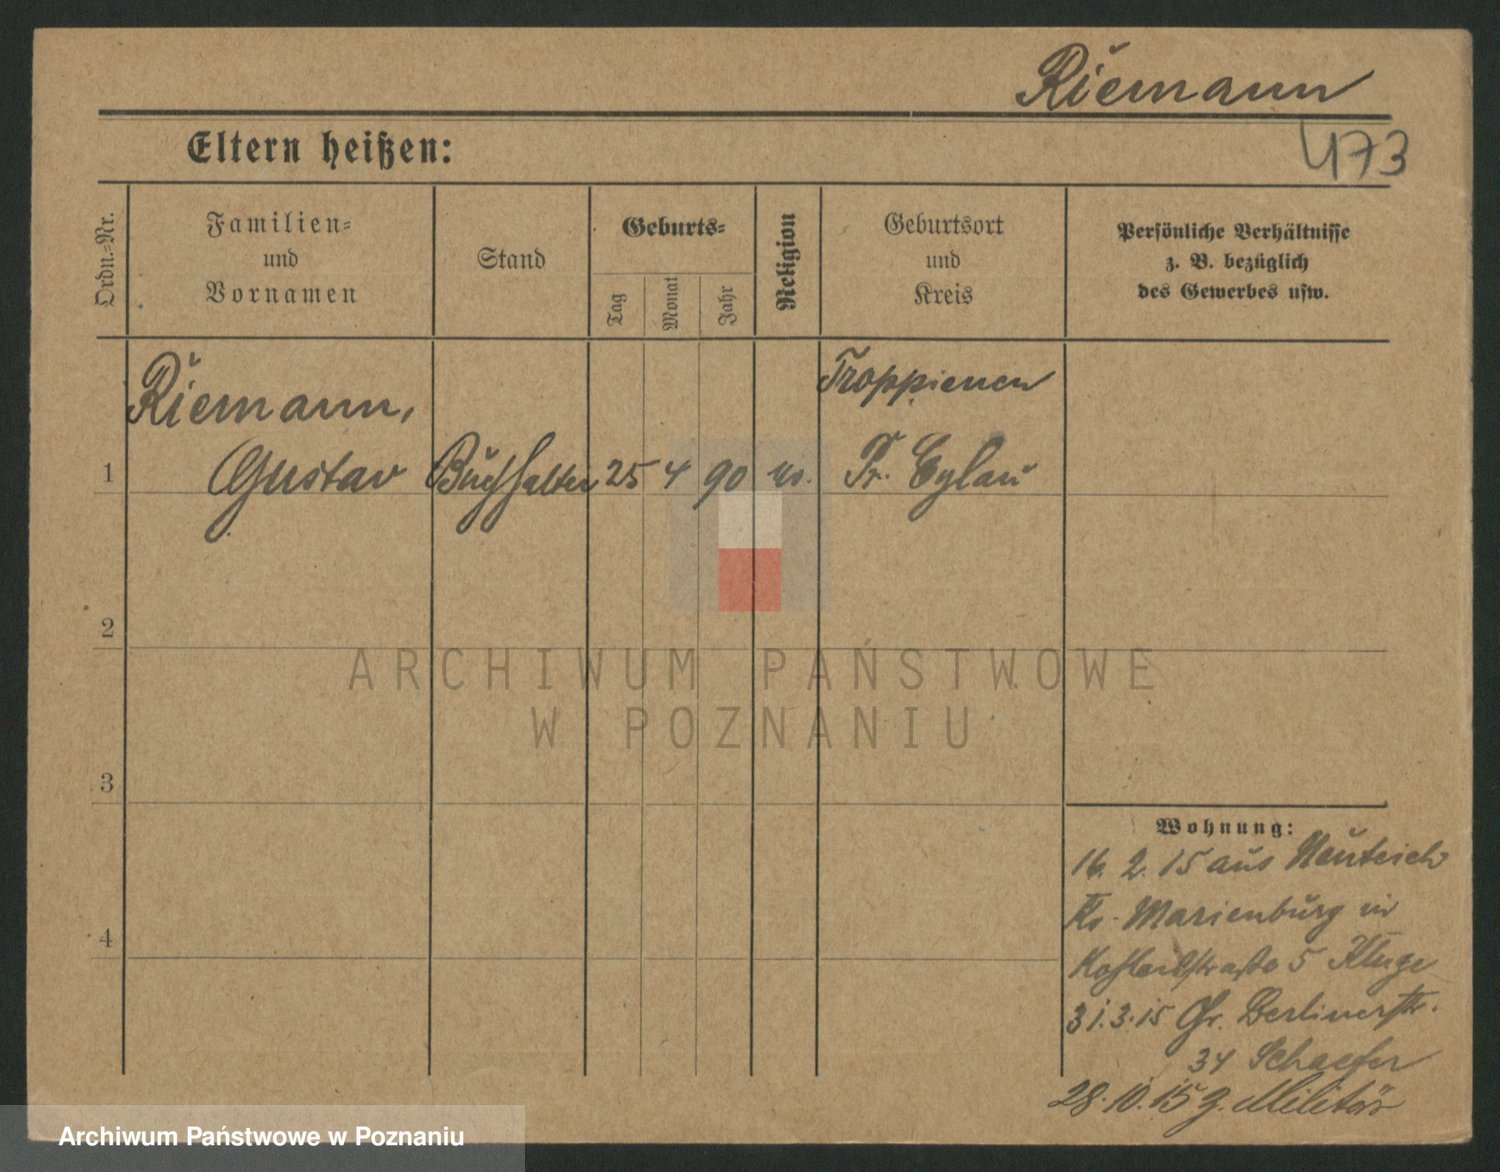 Riemann
473
Eltern heißen:
Ordn.-Nr.
Familien-
und
Vornamen
Stand
Geburts-
Tag
Monat
Jahr
Religion
Geburtsort
und
Kreis
Persönliche Verhältnisse
z. B. bezüglich
des Gewerbes usw.
Riemann,
Troppienen
1
Gustav Buchhalter 25 4 90 Pr. Eylau
2
ARCHIWUM PAŃSTWOWE
W POZNANIU
3
Wohnung:
16. 2. 15 aus Neuteich
Kr. Marienburg in
5 Kluge
4
31.3.15 Gr. Berlinerstr.
34 Schaefer
28.10.15 z. Militär
Archiwum Państwowe w Poznaniu